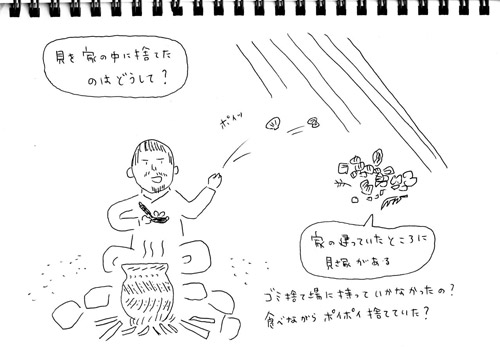 貝を家の中に捨てた
のはどうして？
ポイッ
家の建っていたところに
貝塚がある
ゴミ捨て場に持っていかなかったの？
食べながらポイポイ捨てていた？